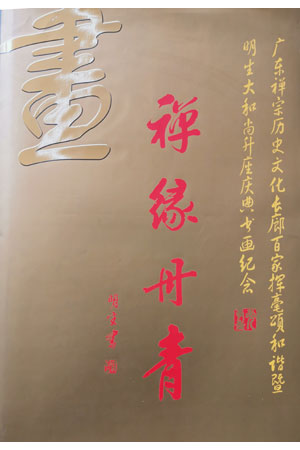 广东禅宗历史文化长廊百家挥毫颂和谐暨
明生大和尚升座庆典书画纪念
禅缘丹青
明生书
畫